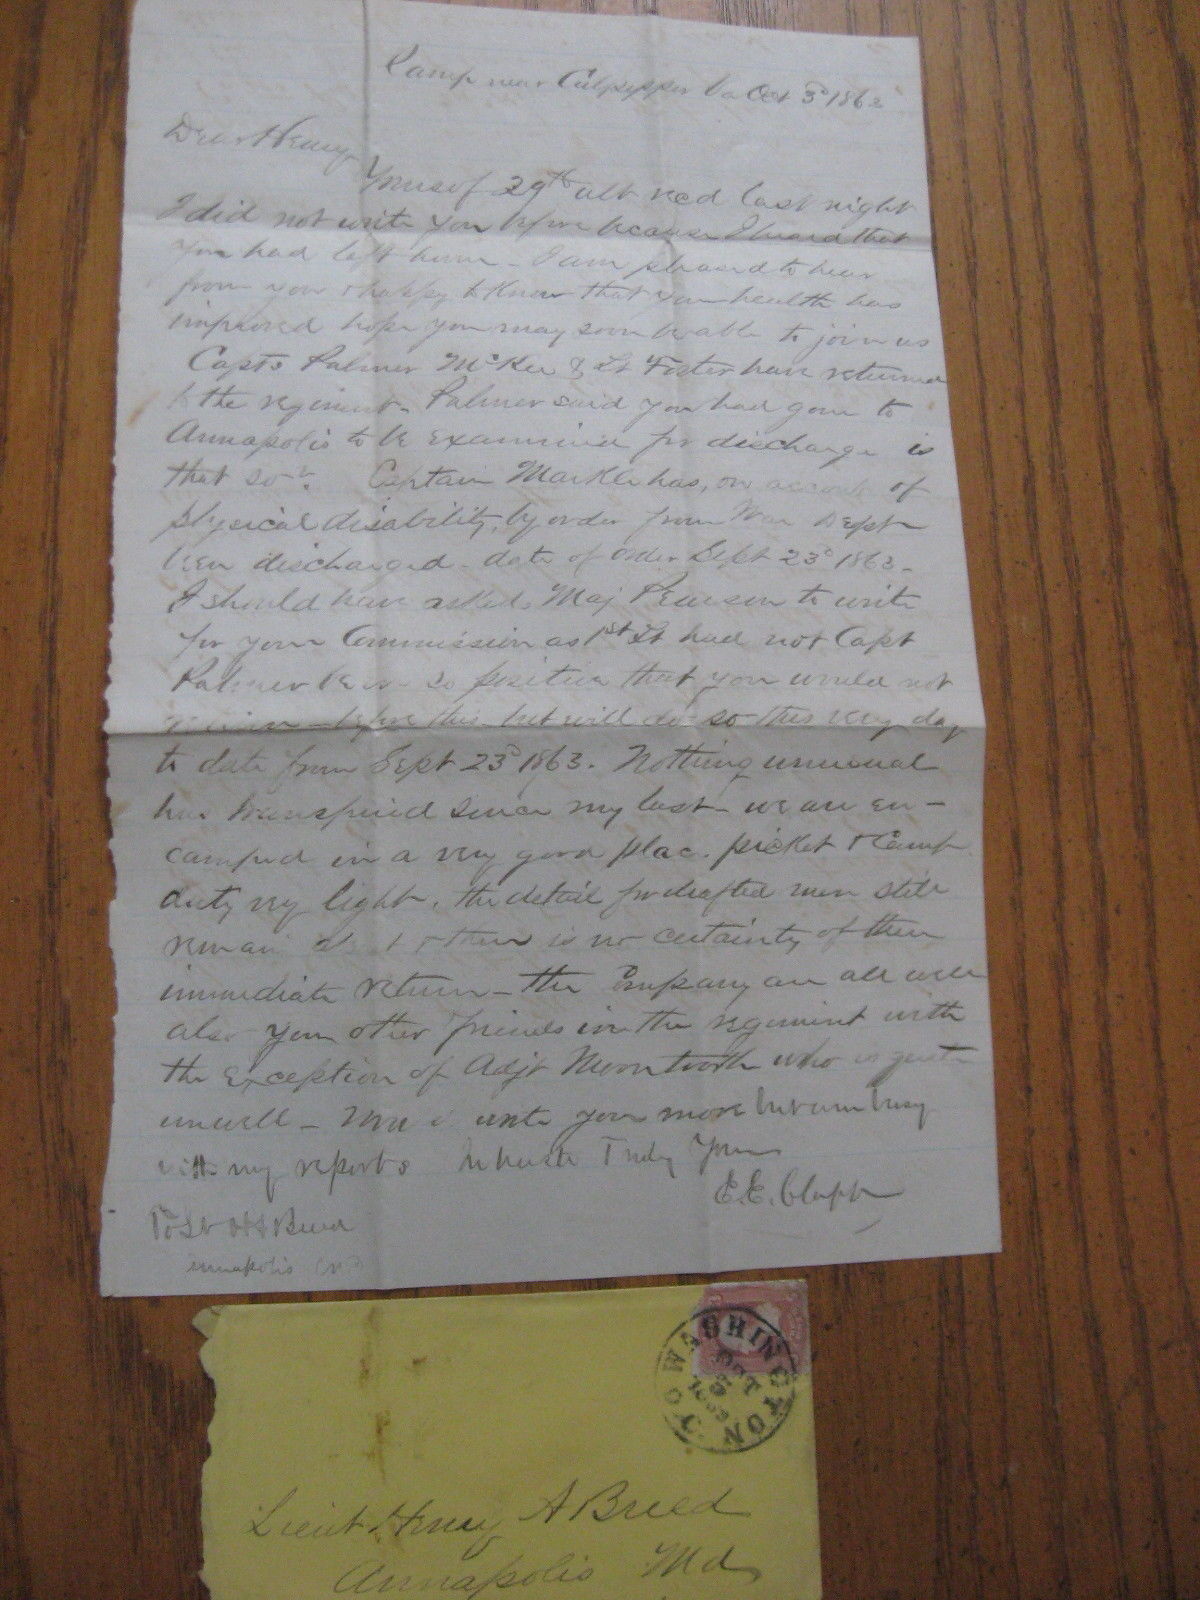 Camp near Culpepper Va Oct 3d 1863
Dear Henry
Yours of 29th ult recd last night
I did not write you before because I heard that
you had left home - I am pleased to hear
from you & happy to know that your health has
improved hope you may soon be able to join us
Capts Palmer McKee & Lt Foster have returned
to the regiment - Palmer said you had gone to
Annapolis to be examined for discharge is
that so? Captain Markle has, on account of
physical disability, by order from War Dept
been discharged - date of order Sept 23d 1863 -
I should have asked Maj Pearson to write
for your Commission as 1st Lt had not Capt
Palmer been so positive that you would not
before this - but will do so this very day
to date from Sept 23d 1863. Nothing unusual
has transpired since my last - we are en-
camped in a very good place. picket & Camp
duty very light. the detail for drafted men still
remain & there is no certainty of their
immediate return - the Company are all well
also your other friends in the regiment with
the exception of Adjt Moorntooth who is quite
unwell - write you more but am busy
with my reports In haste Truly Yours
E. E. Clapp
To Lt H A Breed
Annapolis Md
WASHINGTON
OCT
1863
Lieut Henry A Breed
Annapolis Md